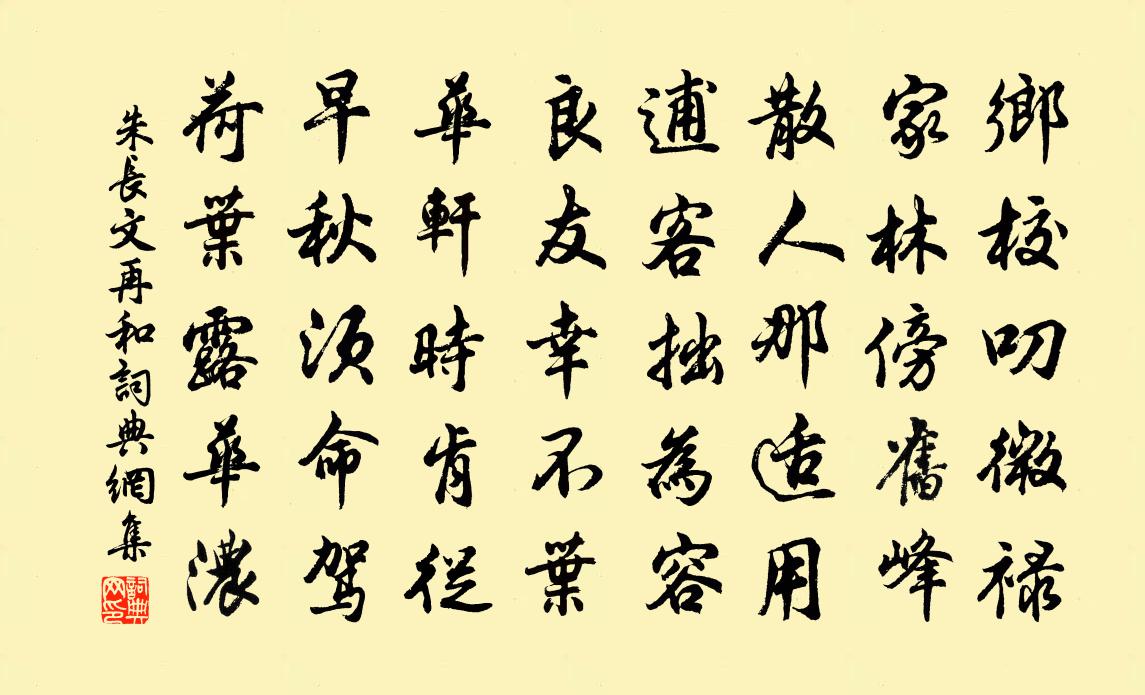 鄉校叨微祿
家林傍舊峰
散人那适用
逋客拙為容
良友幸不葉
華軒時肯從
早秋須命駕
荷葉露華濃
朱長文再和詞典網集
詞典网印